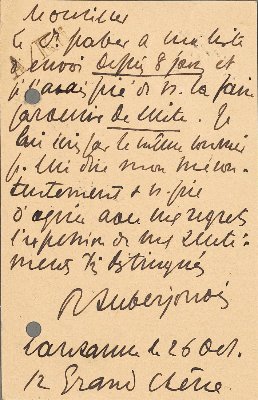 Monsieur
Le Dr. Faber a ma liste
d'envoi depuis 8 jours et
je l'avais prié de vs. la faire
parvenir de suite. Je
lui écris par le même courrier
p. lui dire mon mécon-
tentement & vs prie
d'agréer avec mes regrets
l'expression de mes senti-
ments ts distingués
R Auberjonois
Lausanne le 26 Oct.
12 Grand Chêne.